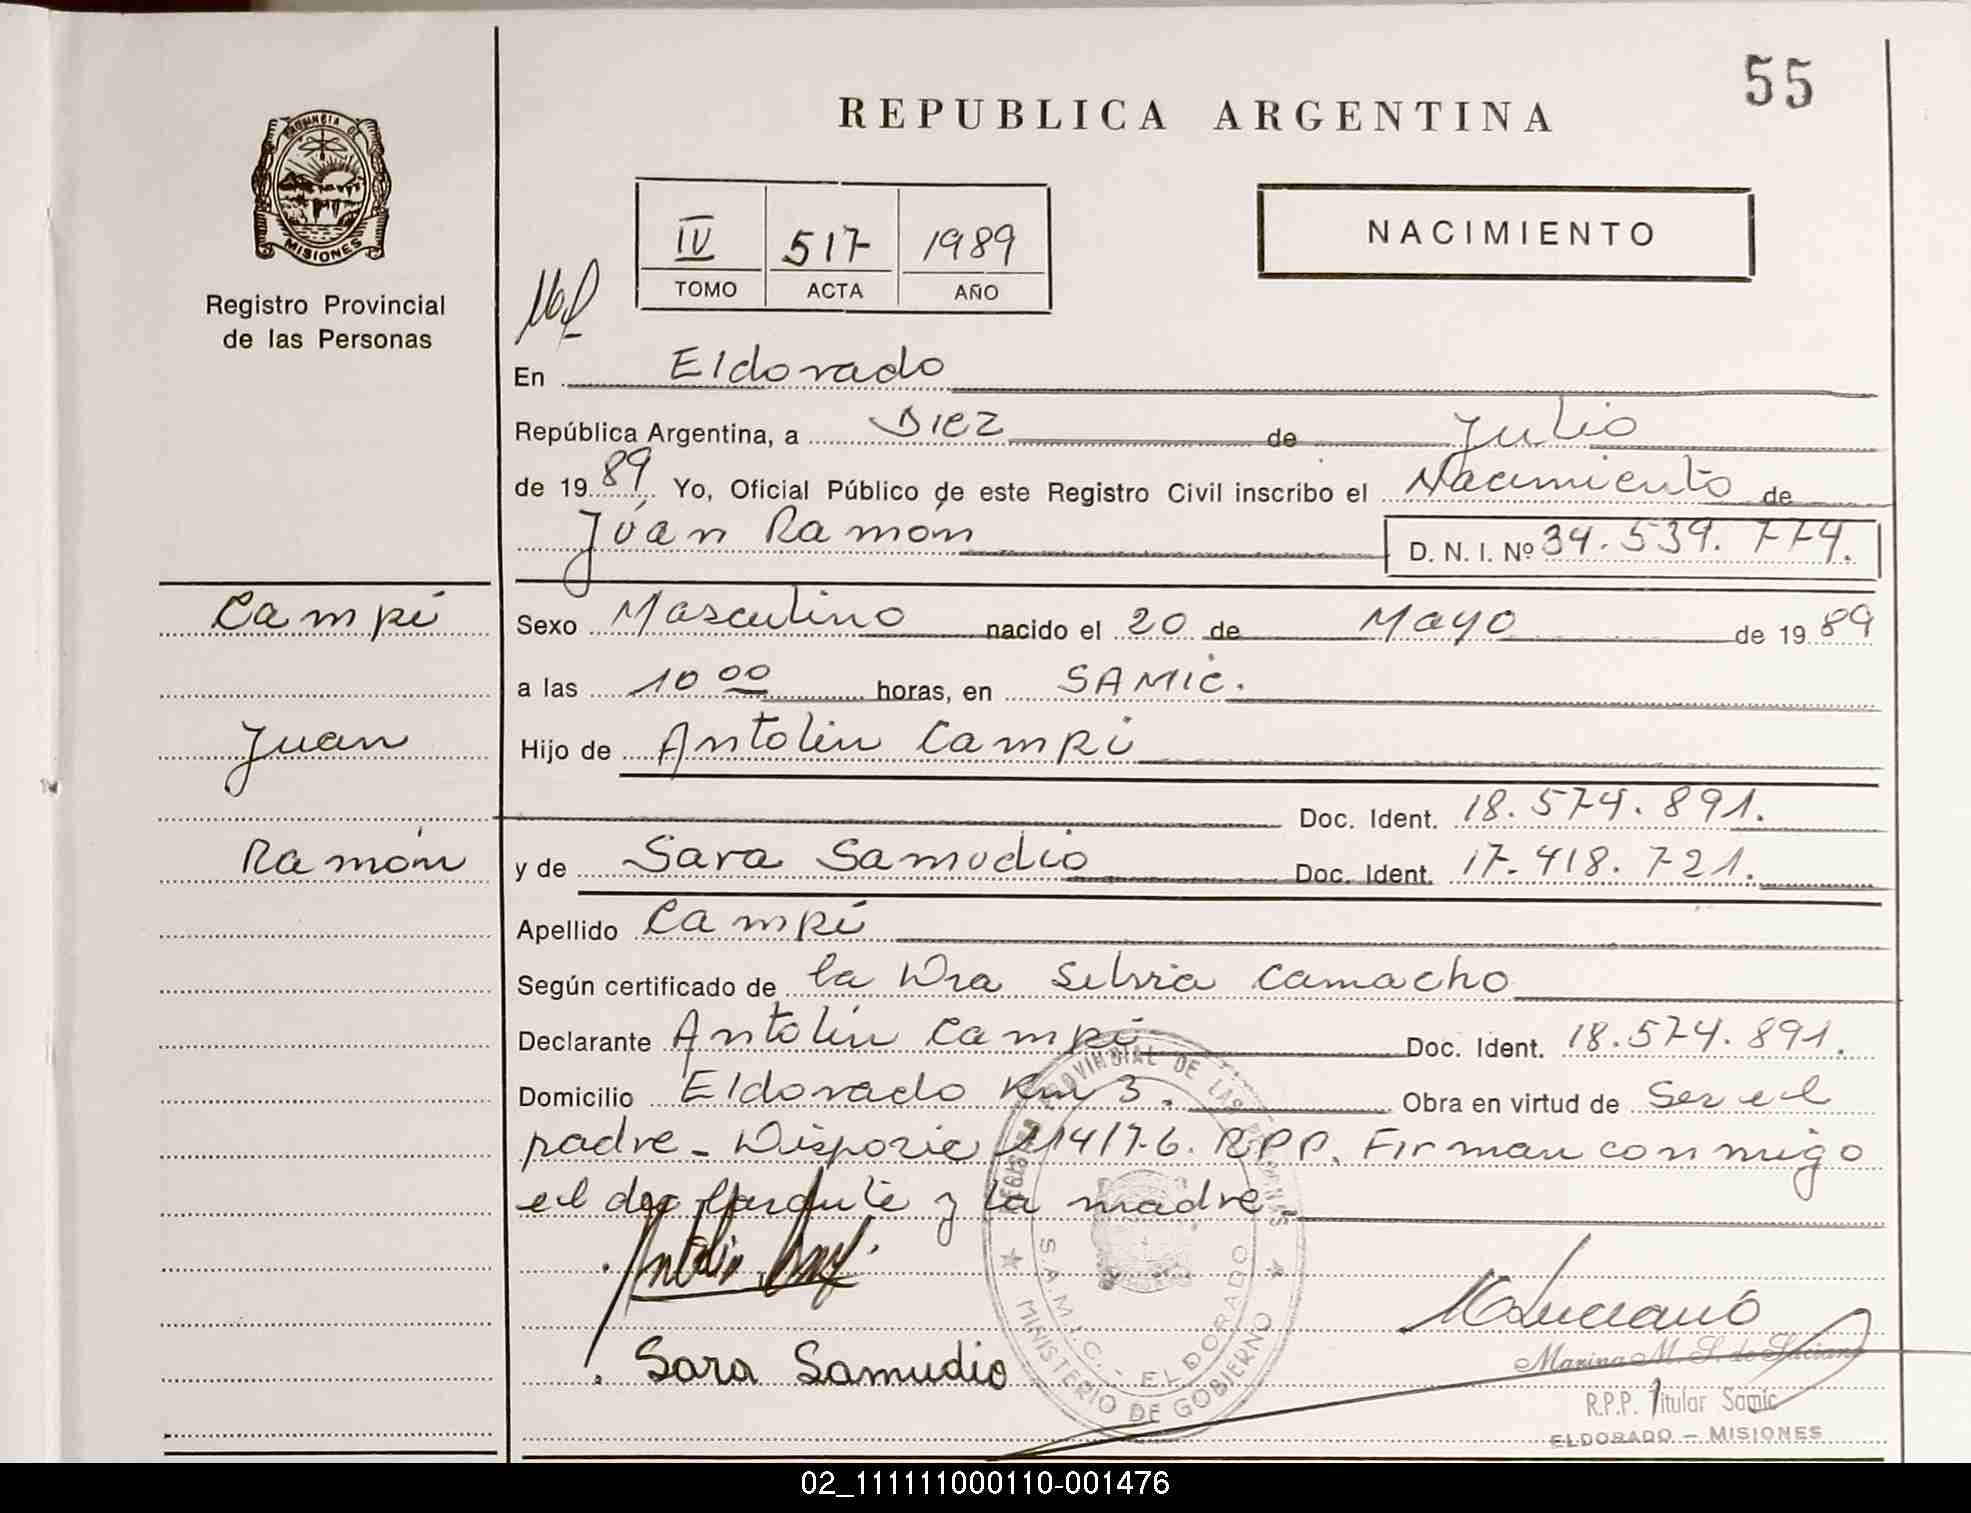 55
REPUBLICA ARGENTINA
PROVINCIA DE
MISIONES
Registro Provincial
de las Personas
IV 517 1989
TOMO ACTA AÑO
NACIMIENTO
En Eldorado
República Argentina, a Diez de Julio
de 1989, Yo, Oficial Público de este Registro Civil inscribo el Nacimiento de
Juán Ramón D. N. I. Nº 34.539.774.
Campi
Juan
Ramón
Sexo Masculino nacido el 20 de Mayo de 1989
a las 10 00 horas, en SAMIC.
Hijo de Antolin Campi
Doc. Ident. 18.574.891.
y de Sara Samudio Doc. Ident. 17.418.721.
Apellido Campi
Según certificado de la Dra Silvia Camacho
Declarante Antolin Campi Doc. Ident. 18.574.891.
Domicilio Eldorado Km 3. Obra en virtud de Ser el
padre - Disposic 114/76. R.P.P. Firman conmigo
el declarante y la madre.
PROVINCIAL DE LAS
S.A.M.I.C. - ELDORADO
MINISTERIO DE GOBIERNO
Sara Samudio
Marina M. S. de Luciano
R.P.P. Titular Samic
ELDORADO - MISIONES
02_111111000110-001476